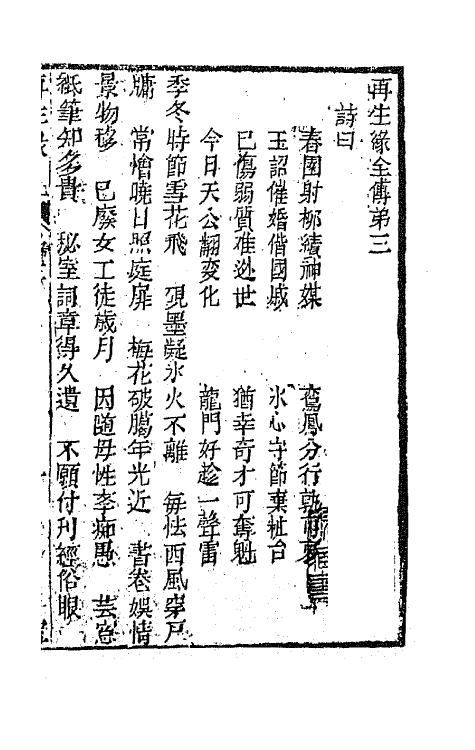 再生緣全傳第三
詩曰
春園射柳續神媒 鸞鳳分行孰
玉詔催婚偕國戚 氷心守節棄粧台
已傷弱質难迯世 猶幸奇才可奪魁
今日天公翻变化 龍門好趁一聲雷
季冬時節雪花飛 硯墨凝氷火不離 每怯西風穿戸
牗 常憎曉日照庭扉 梅花破臘年光近 書卷娛情
景物移 已廢女工徒歲月 因随母性李痴愚 芸窓
紙筆知多貴 秘室詞章得久遺 不願付刊經俗眼